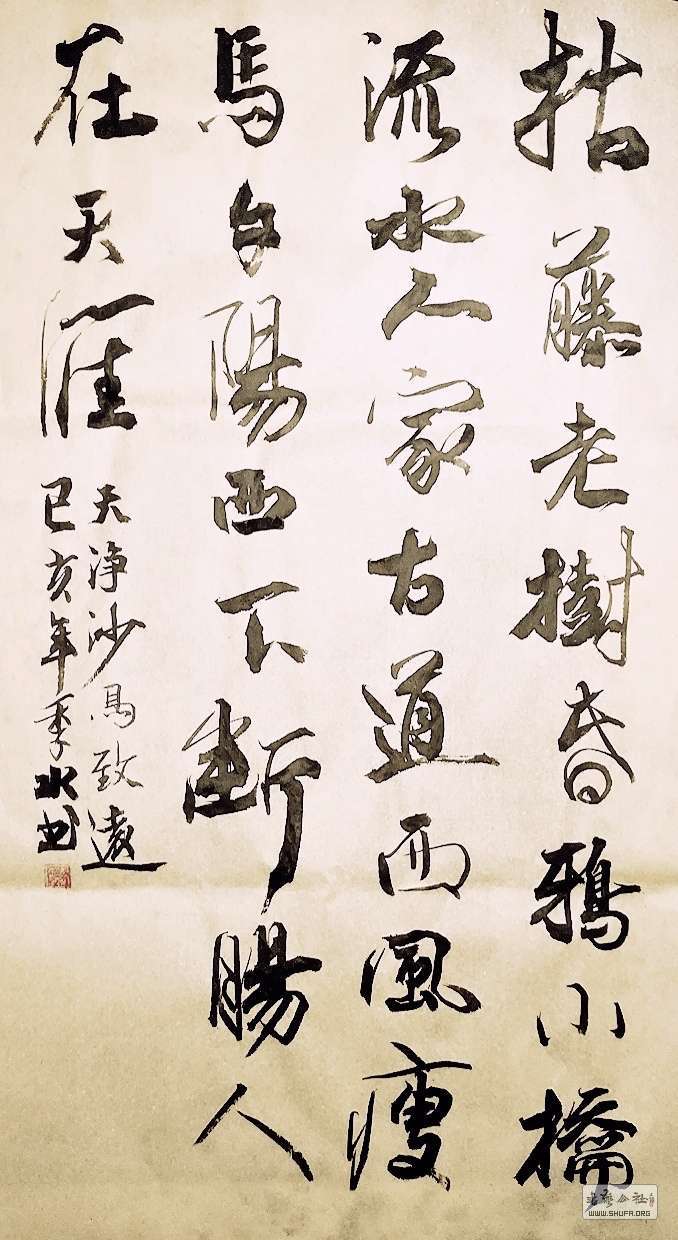 枯藤老樹昏鴉小橋
流水人家古道西風瘦
馬夕陽西下断腸人
在天涯
天淨沙馬致遠
己亥年季水书
WWW.SHUFA.ORG